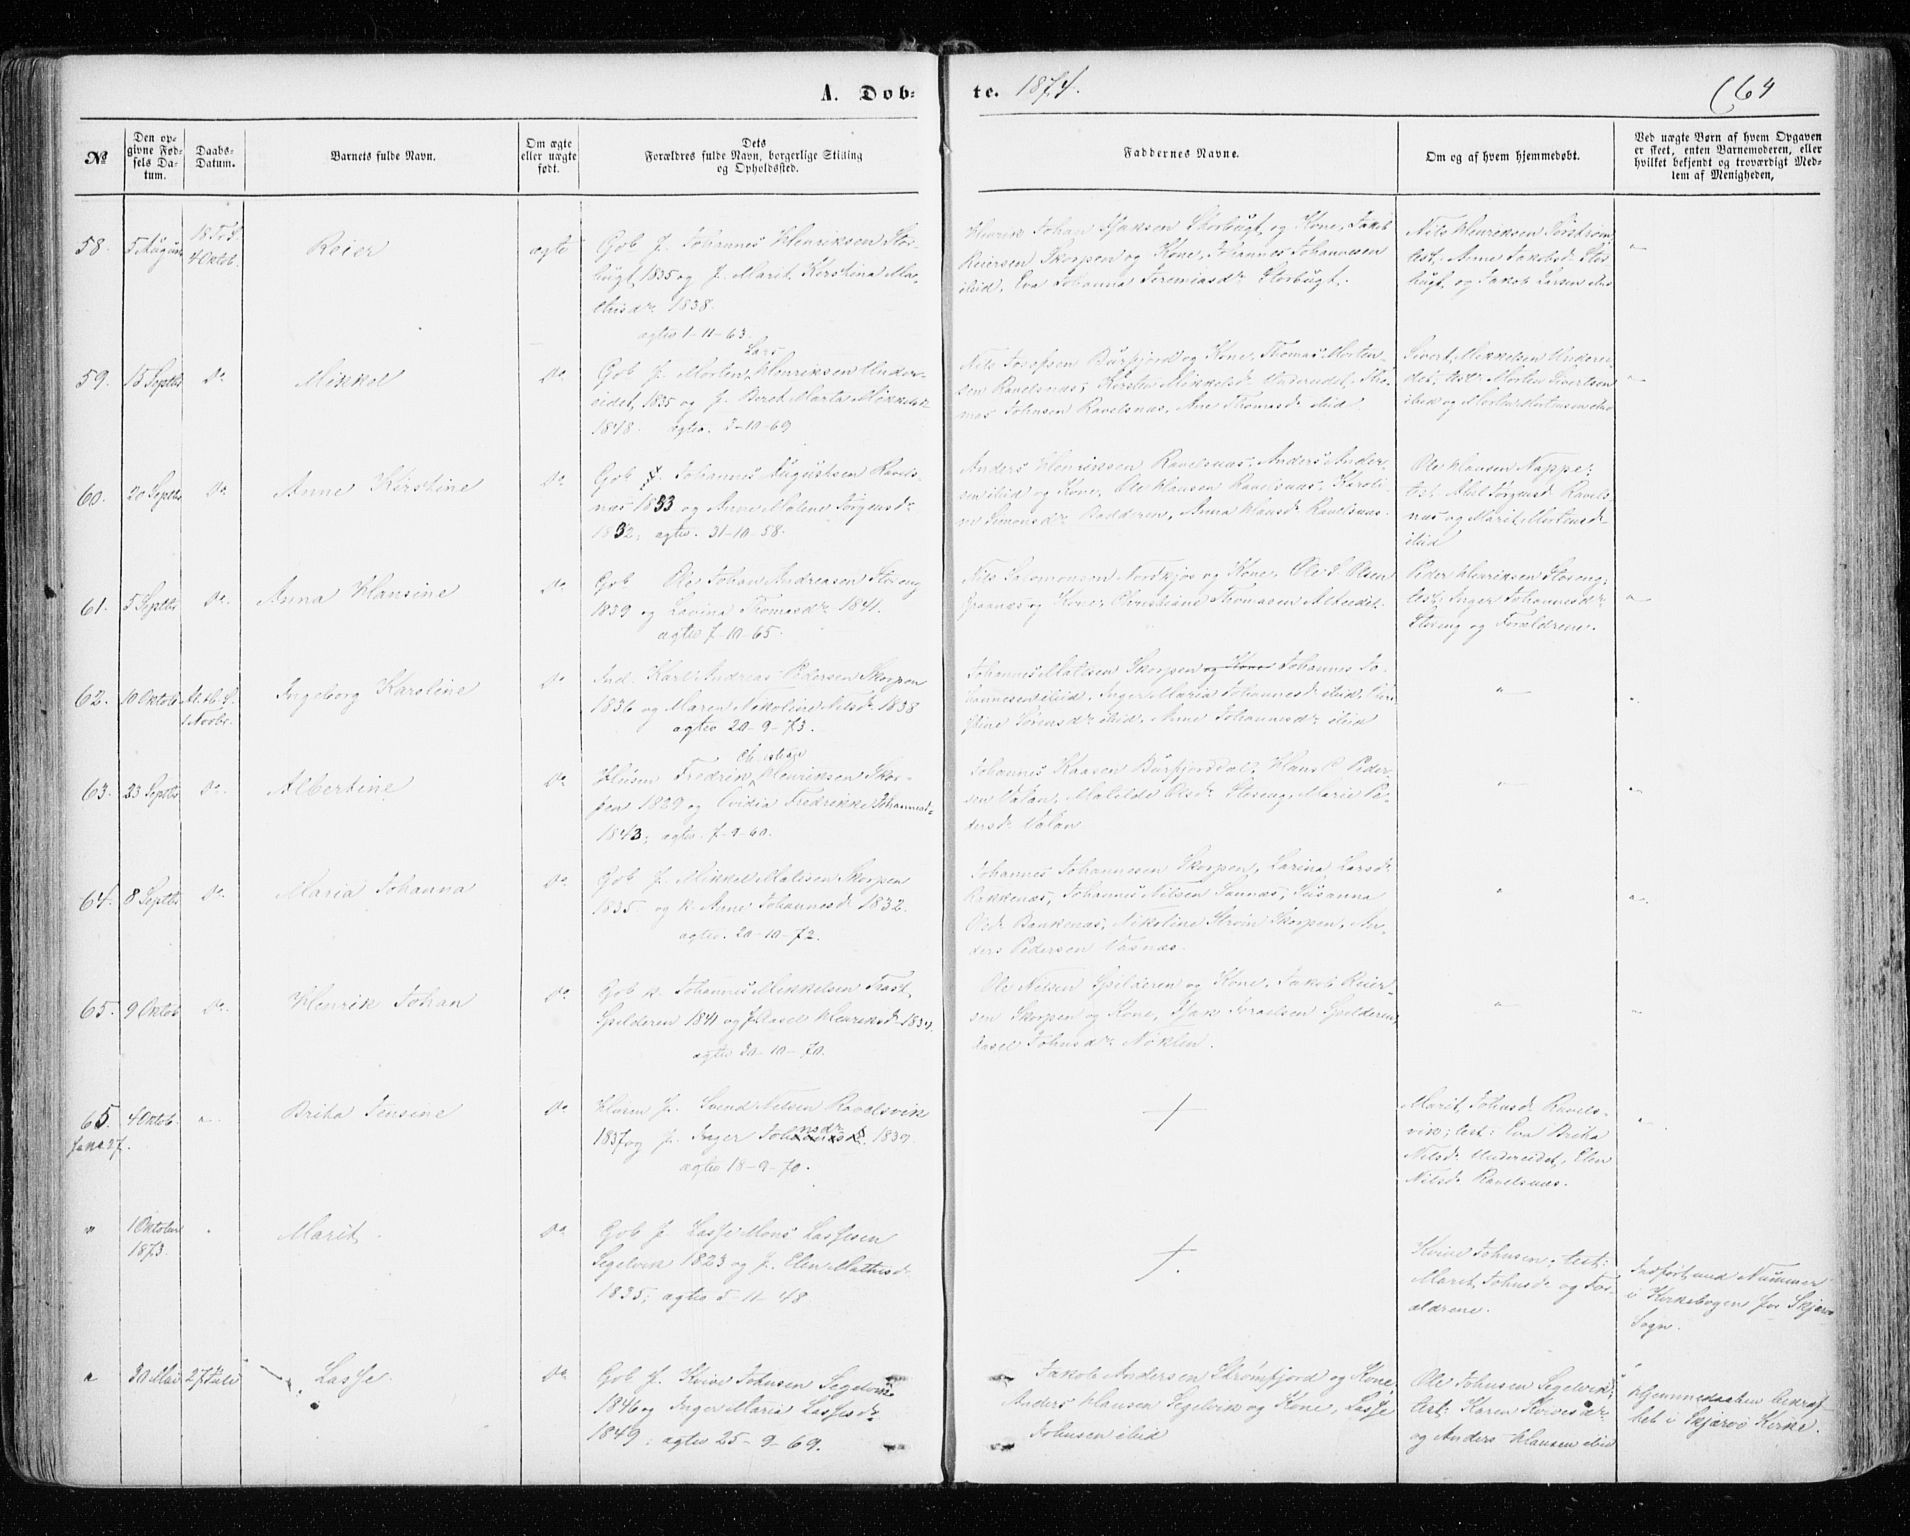 A. Dob-
te. 1874.
64
No
Den op-
givne Fød-
sels Da-
tum.
Daabs-
Datum.
Barnets fulde Navn.
Om ægte
eller uægte
født.
Dets
Forældres fulde Navn, borgerlige Stilling
og Opholdssted.
Faddernes Navne.
Om og af hvem hjemmedøbt.
Ved uægte Børn af hvem Opgaven
er skeet, enten Barnemoderen, eller
hvilket bekjendt og troværdigt Med-
lem af Menigheden,
58.
5 August
18 Tr S
4 Oktob
Reier
ægte
Gob f. Johannes Henriksen Stor-
bugt, 1835 og f. Marit Kirstina Ma-
thisdr 1838.
ægtev 1-11-63.
Henrik Johan Isaksen Storbugt, og Kone, Jakob
Reiersen Skorpen og Kone, Johannes Johannesen
ibid, Eva Johanna Jeremiasdr Storbugt.
Nils Henriksen Sørstrøm
test. Anne Jakobsdr Stor-
bugt, og Jakob Larsen ibid
"
59.
15 Septbr
Do
Mikkel
Do
Lars
Gob f. Morten Henriksen Under-
eidet, 1835 og f. Beret Marta Mikkelsdr
1848 ægtev. 3-10-69
Nils Josefsen Burfjord og Kone, Thomas Morten-
sen Ravelsnæs, Kirsten Mikkelsdr Undereidet, Tho-
mas Johnsen Ravelsnæs, Ane Thomasdr ibid.
Sivert Mikkelsen Underei-
det, test: Morten Sivertsen
ibid og Morten Mortensen ibid
"
60.
20 Septbr
Do
Anne Kirstine
Do
Gob f. Johannes Augustsen Ravels-
næs 1833 og Anne Malene Jørgensdr
1832; ægtev. 31-10-58.
Anders Henriksen Ravelsnæs, Anders Ander-
sen ibid og Kone, Ole Hansen Ravelsnæs, Karoli-
ne Simonsdr Badderen, Anna Hansdr Ravelsnæs.
Ole Hansen Nappe:
test. Abel Jørgensdr Ravels-
næs og Marit Mortensdr
ibid
61.
5 Septbr
Do
Anna Hansine
Do
Gob Ole Johan Andreasen Storeng
1839 og Lovina Thomasdr 1841.
ægtev 7-10-65.
Nils Salomonsen Nordkjos og Kone, Ole J. Olsen
Graanæs og Kone, Christiane Thomasen Alteidet.
Peder Henriksen Storeng;
test: Inger Johannesdr
Storeng og Forældrene.
"
62.
10 Oktob
Al. H. S.
1 Novbr.
Ingeborg Karoline
Do
Ind. Karl Andreas Pedersen Skorpen
1836 og Maren Nikoline Nilsdr 1838
ægtev 20-9-73.
Johannes Matisen Skorpen og Kone Johannes Jo-
hannesen ibid, Inger Maria Johannesdr ibid, Chri-
stine Sørensdr ibid, Anne Johannesdr ibid
"
"
63.
23 Septbr
Do.
Albertine
Do
Christian
Husm Fredrik Henriksen Skor-
pen 1829 og Ovidia Fredrikke Johannesdr
1843; ægtev. 7-9-60.
Johannes Kaasen Burfjorddal, Hans P. Peder-
sen Valan, Matilde Olsdr Storeng, Marie Pe-
dersdr Valan
"
"
64.
8 Septbr
Do.
Maria Johanna
Do.
Gob f. Mikkel Matisen Skorpen
1835. og k. Anne Johannesdr 1832.
ægtev. 20-10-72.
Johannes Johannesen Skorpen, Larina Larsdr
Rakkenæs, Johannes Nilsen Sannæs, Susanna
Olsdr Bankenæs, Nikoline Strøm Skorpen, An-
ders Pedersen Vasnæs.
"
"
65.
9 Oktob
Do.
Henrik Johan
Do
Gob k. Johannes Mikkelsen Trast,
Spilderen 1841 og f. Rasel Henriksdr 1839.
ægtev 30-10-70.
Ole Nilsen Spilderen og Kone, Jakob Reier-
sen Skorpen og Kone, Isak Israelsen Spilderen,
Rasel Johnsdr Nøklen.
"
"
65
4 Oktob.
"
Brita Jensine
Do
Husm f. Svend Nilsen Ravelsvik
1837 og f. Inger Johansdr. 1839.
ægtev 18-9-70.
+
Marit Johnsdr Ravels-
vik; test: Eva Brita
Nilsdr Undereidet, Elen
Nilsdr Ravelsnæs.
"
"
1 Oktober
1873.
"
Marit.
Do
Gob f. Lasse Mons Lassesen
Segelvik 1823 og f. Elen Mathisdr
1835; ægtev 5-11-48.
+.
Kvive Johnsen; test:
Marit Johnsdr og For-
ældrene.
Indført med Nummer
i Kirkebogen for Skjervø
Sogn.
"
30 Mai
27 Juli
Lasse
Do
Gob f. Kvive Johnsen Segelvik
1846 og Inger Maria Lassesdr
1849; ægtev 25-9-69.
Jakob Andersen Strømfjord og Kone,
Anders Hansen Segelvik og Kone, Lasse
Johnsen ibid
Ole Johnsen Segelvik;
test: Karen Kvivesdr
og Anders Hansen ibid
Hjemmedaaben bekræf-
tet i Skjervø Kirke.